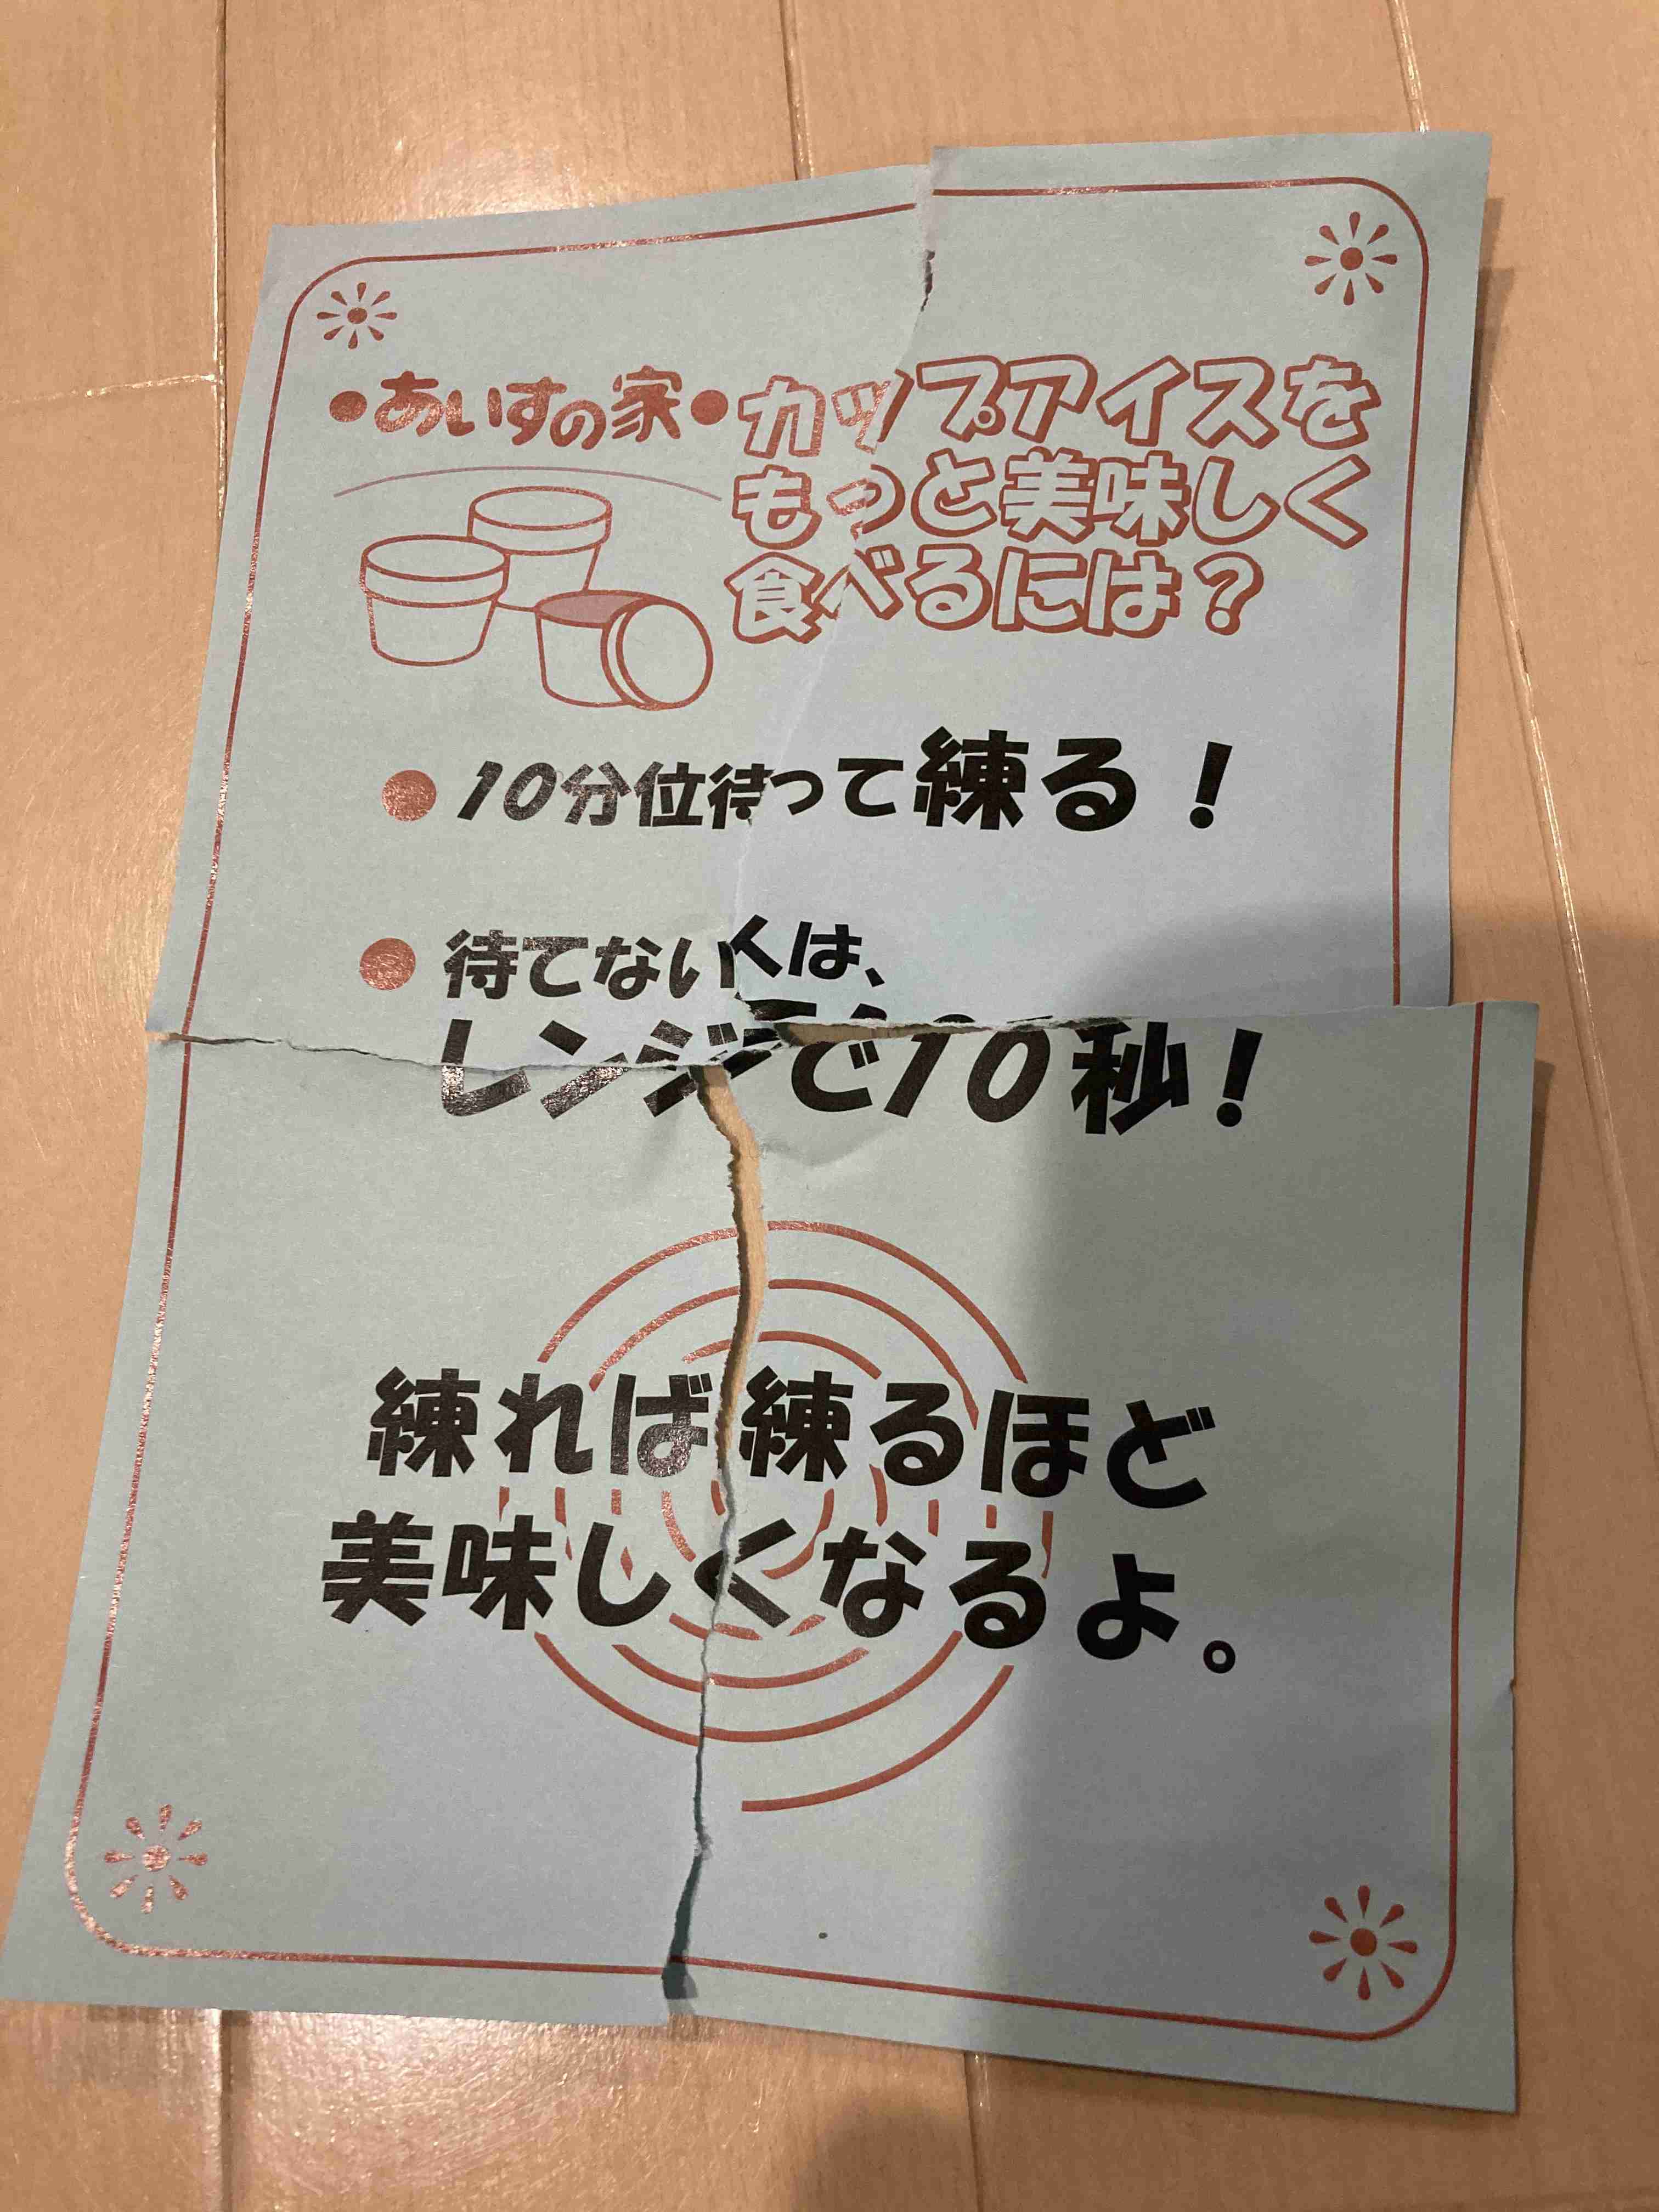 •あいすの家•
カップアイスを
もっと美味しく
食べるには?
● 10分位待って練る!
● 待てない人は、
レンジで10秒!
練れば練るほど
美味しくなるよ。